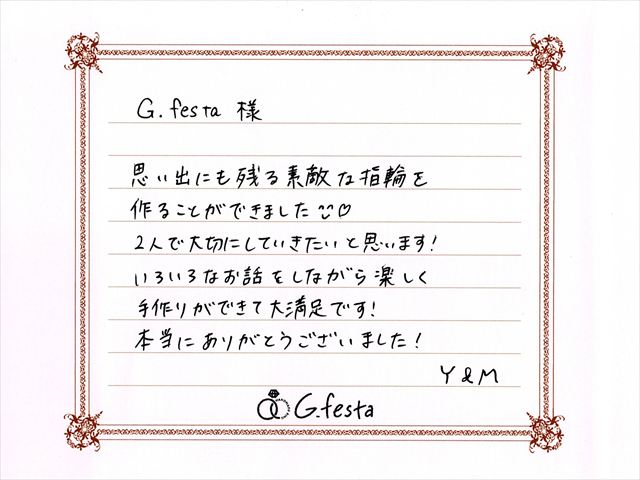 G.festa 様
思い出にも残る素敵な指輪を
作ることができました♡
2人で大切にしていきたいと思います!
いろいろなお話をしながら楽しく
手作りができて大満足です!
本当にありがとうございました!
Y&M
G.festa